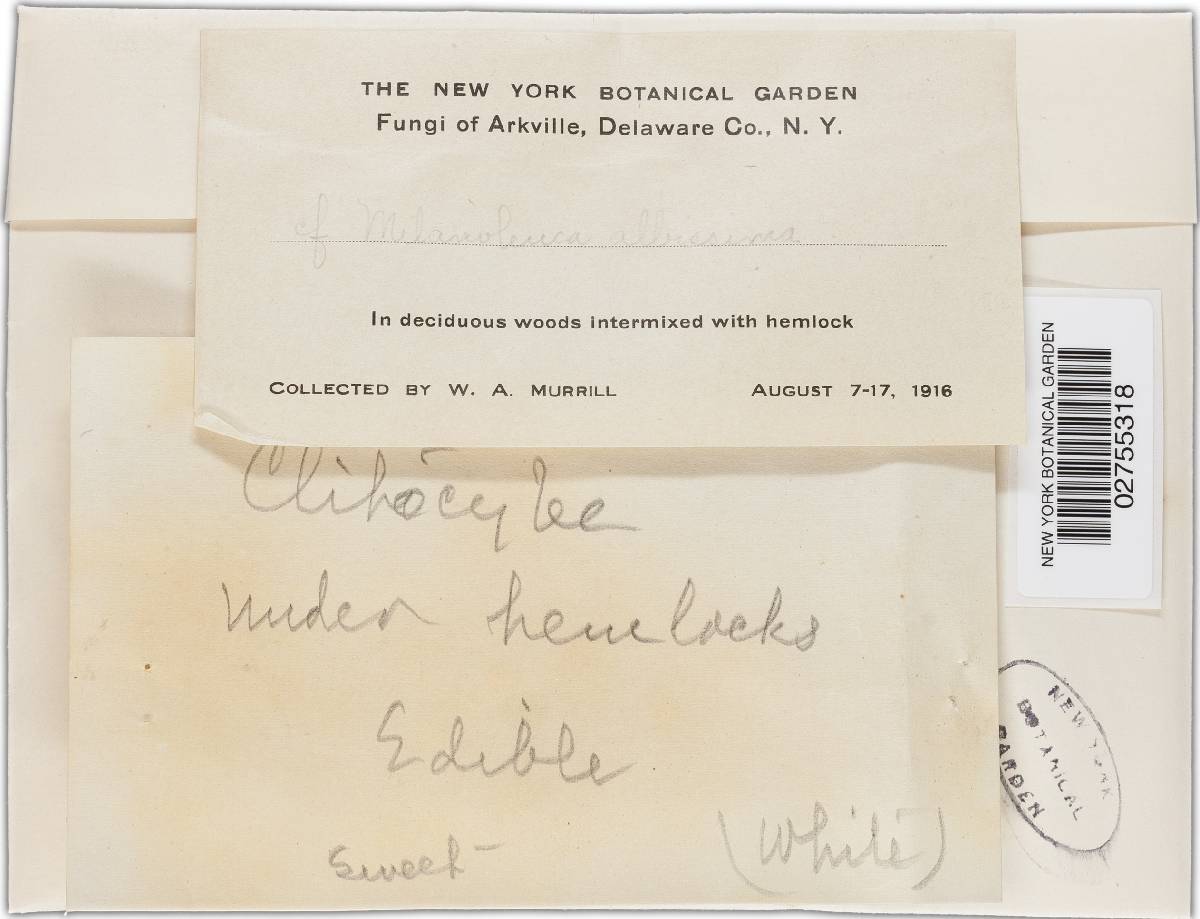 THE NEW YORK BOTANICAL GARDEN
Fungi of Arkville, Delaware Co., N. Y.
cf Melanoleuca
In deciduous woods intermixed with hemlock
COLLECTED BY W. A. MURRILL AUGUST 7-17, 1916
Clitocybe
under hemlocks
Edible
(White)
Sweet
NEW YORK BOTANICAL GARDEN
02755318
NEW YORK
BOTANICAL
GARDEN